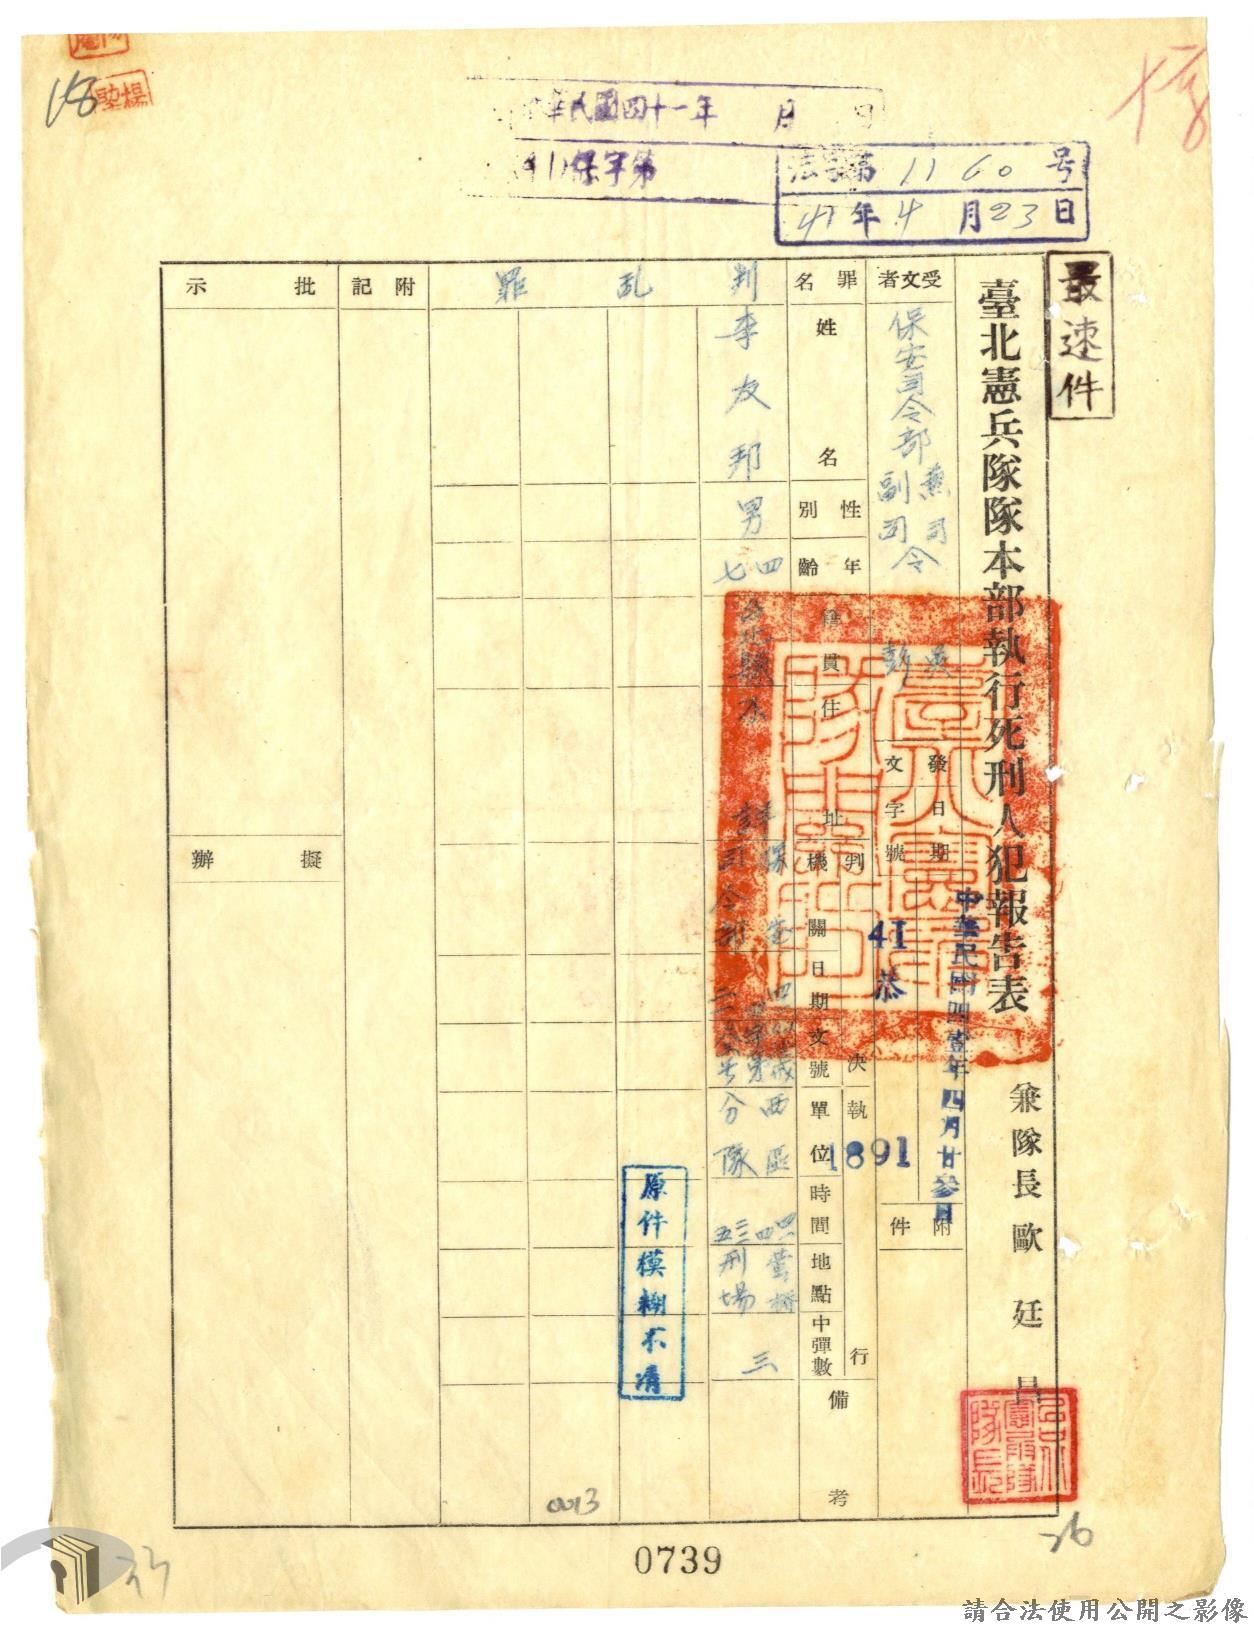 楊
118
中華民國四十一年 月 日
(41)保字第
法字第1160号
41年4月23日
最速件
臺北憲兵隊隊本部執行死刑人犯報告表
兼隊長歐廷昌
臺北憲兵隊隊長
受文者
保安司令部兼司令吳
副司令彭
發文
日期
中華民國四壹年四月廿參日
字號
41恭1891
附件
罪名
判乱罪
姓名
李友邦
性別
男
年齡
四七
籍貫
台北縣
住址
判決
機關
保安司令部
日期
文號
執行
單位
西區分隊
時間
地點
螢橋刑場
中彈數
三
備考
原件模糊不清
附記
批示
擬辦
0013
0739
26
請合法使用公開之影像